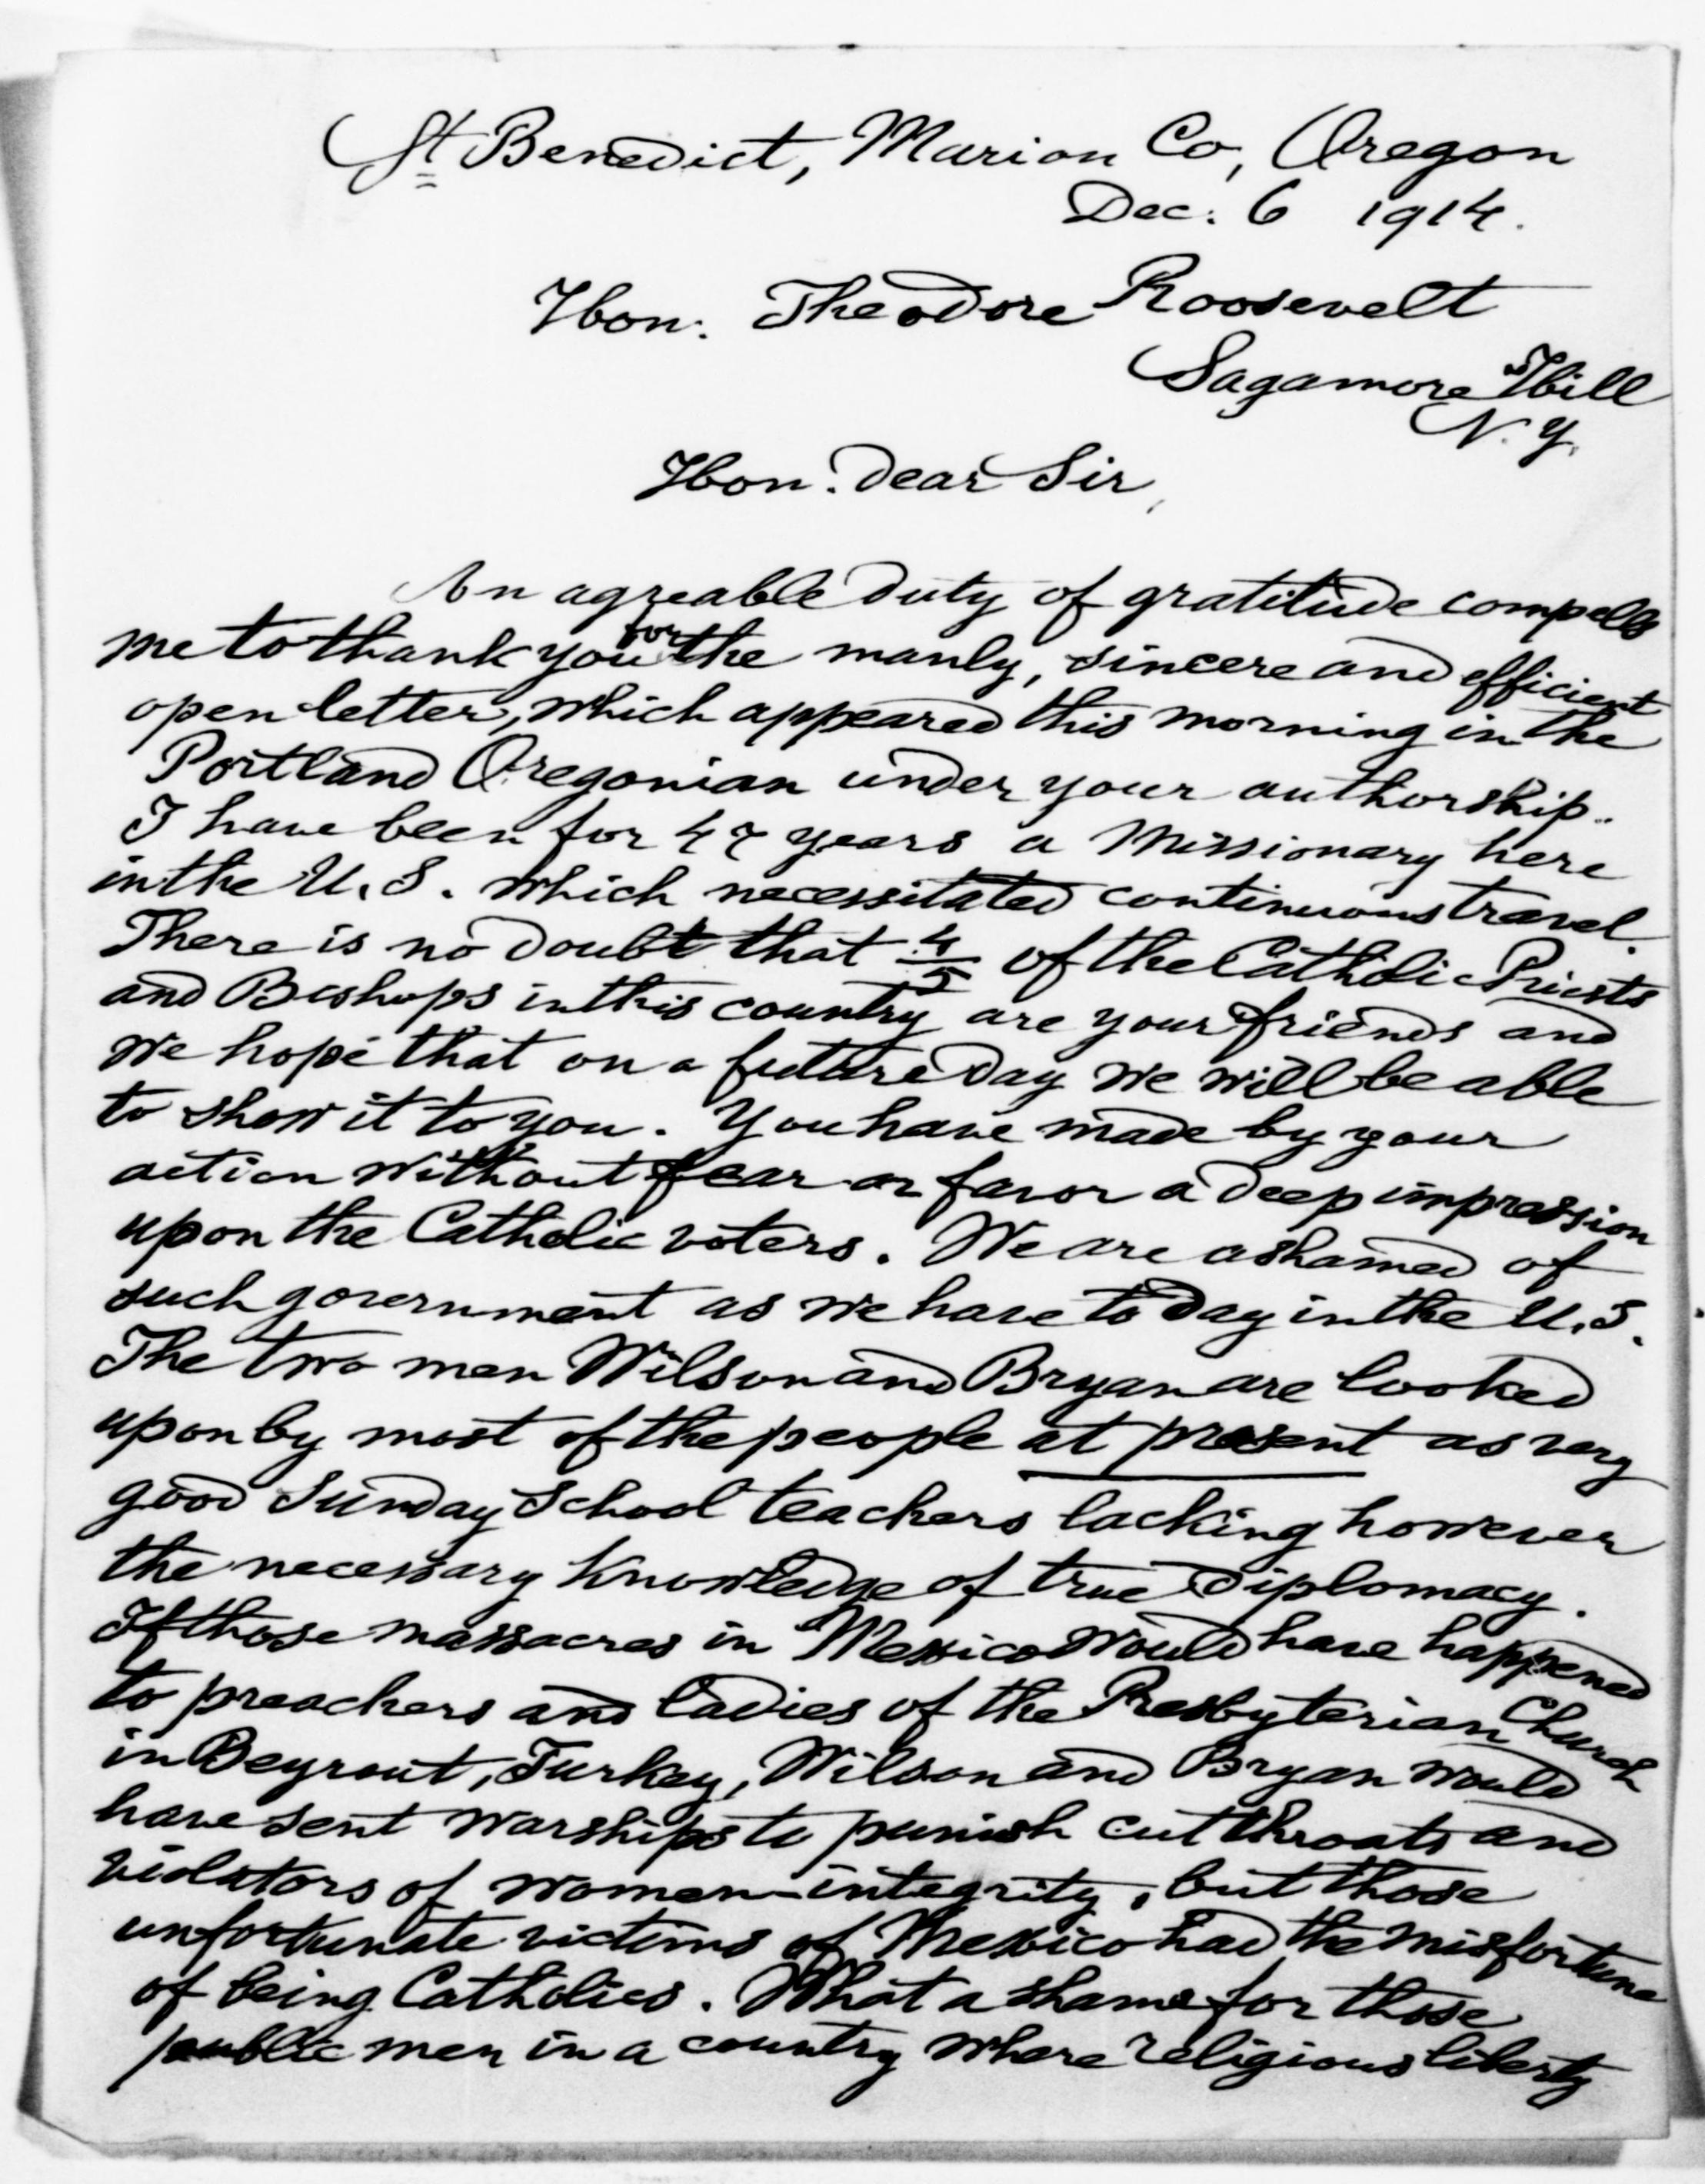 St Benedict, Marion Co, Oregon
Dec. 6 1914.
Hon. Theodore Roosevelt
Sagamore Hill
N. Y.
Hon. Dear Sir,
An agreable duty of gratitude compells
me to thank you for the manly, sincere and efficient
open letter, which appeared this morning in the
Portland Oregonian under your authorship.
I have been for 47 years a Missionary here
in the U. S. which necessitated continuous travel.
There is no doubt that 4/5 of the Catholic Priests
and Bishops in this country are your friends and
we hope that on a future day we will be able
to show it to you. You have made by your
action without fear or favor a deep impression
upon the Catholic voters. We are ashamed of
such government as we have to day in the U. S.
The two men Wilson and Bryan are looked
upon by most of the people at present as very
good Sunday School teachers lacking however
the necessary knowledge of true diplomacy.
If those massacres in Mexico would have happened
to preachers and ladies of the Presbyterian Church
in Beyrout, Turkey, Wilson and Bryan would
have sent warships to punish cutthroats and
violators of women-integrity, but those
unfortunate victims of Mexico had the misfortune
of being Catholics. What a shame for those
public men in a country where religious liberty